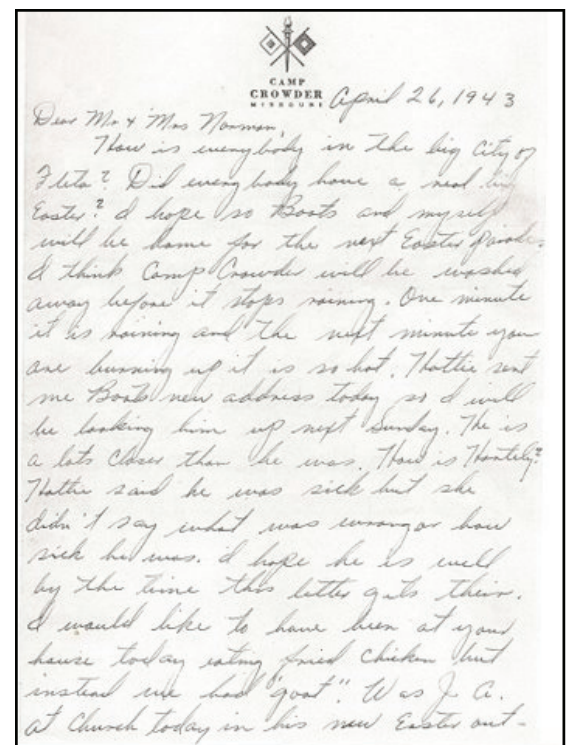 CAMP
CROWDER
MISSOURI
April 26, 1943
Dear Mr & Mrs Norman,
How is everybody in the big City of
Fleta? Did everybody have a real big
Easter? I hope so Boots and myself
will be home for the next Easter parade.
I think Camp Crowder will be washed
away before it stops raining. One minute
it is raining and the next minute you
are burning up it is so hot. Hattie sent
me Boots new address today so I will
be looking him up next Sunday. He is
a lots closer than he was. How is Hantely?
Hattie said he was sick but she
didn't say what was wrong or how
sick he was. I hope he is well
by the time this letter gets their.
I would like to have been at your
house today eating fried chicken but
instead we had "goat". Was J. A.
at Church today in his new Easter out-